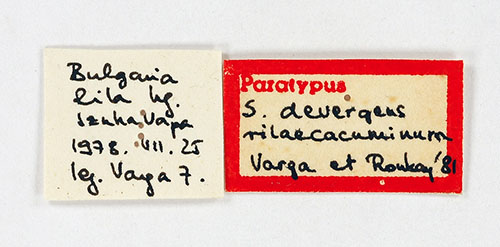 Bulgaria
Rila hg.
Szuha Vapa
1978. VII. 25
leg. Varga Z.
Paratypus
S. devergens
rilaecacuminum
Varga et Ronkay '81